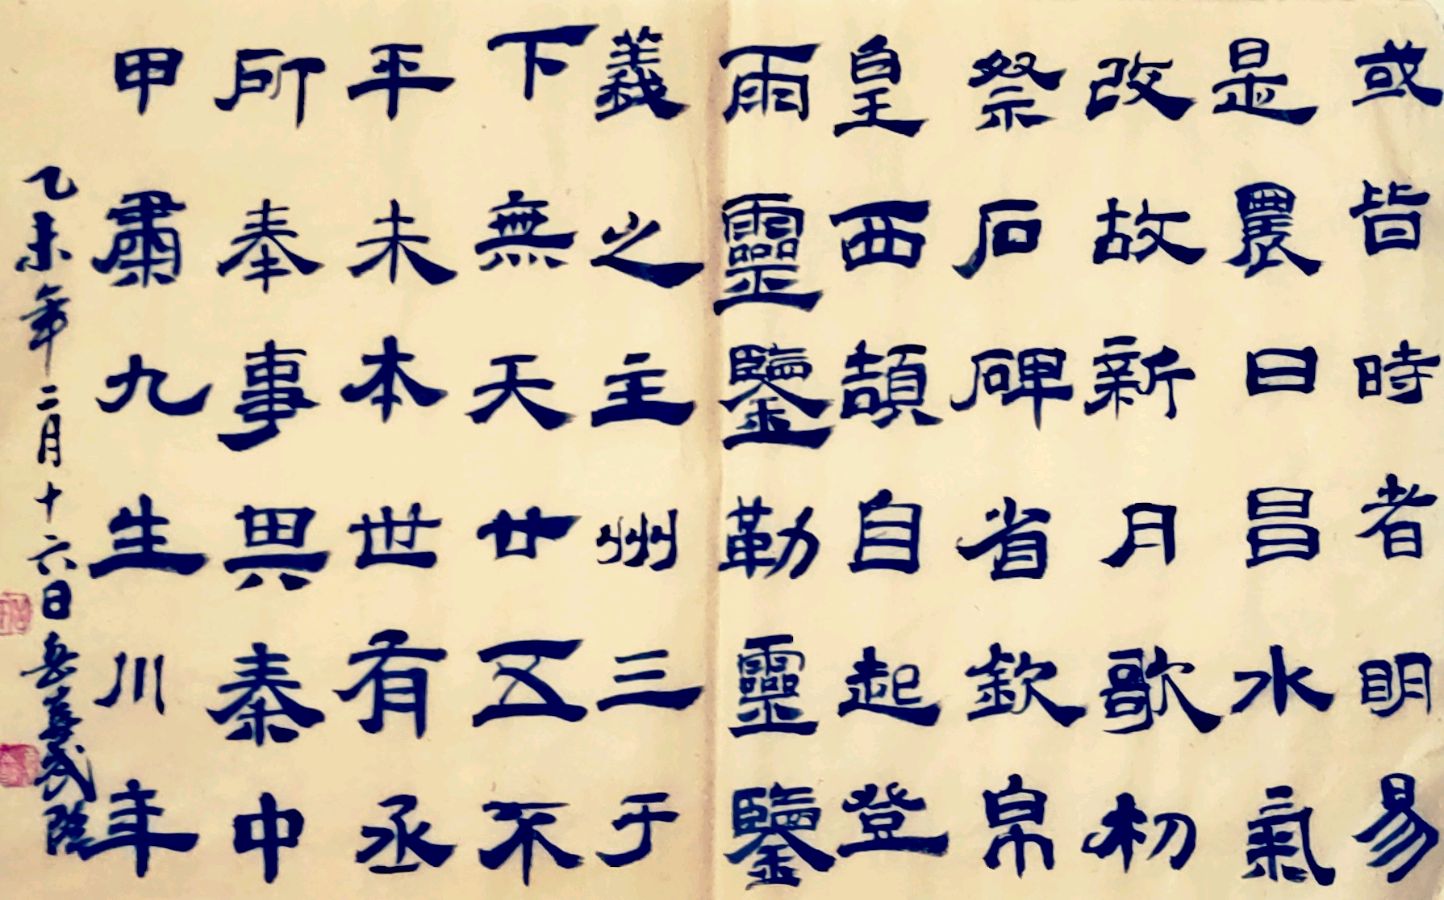 或皆時者明易
是農日昌水氣
改故新月歌初
祭石碑省欽帛
皇西頡自起登
雨靈鑒勒靈鑒
義之主州三于
下無天廿五不
平未本世有丞
所奉事興秦中
甲肅九生川年
乙未年二月十六日岳